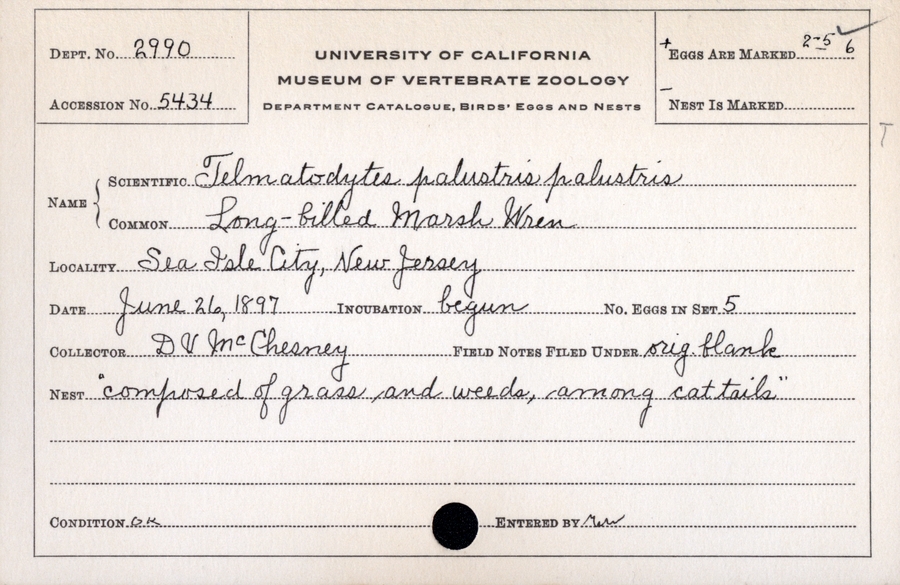 DEPT. No. 2990
ACCESSION No. 5434
UNIVERSITY OF CALIFORNIA
MUSEUM OF VERTEBRATE ZOOLOGY
DEPARTMENT CATALOGUE, BIRDS' EGGS AND NESTS
+ EGGS ARE MARKED 2-5 6 ✓
– NEST IS MARKED
T
NAME { SCIENTIFIC Telmatodytes palustris palustris
COMMON Long-billed Marsh Wren
LOCALITY Sea Isle City, New Jersey
DATE June 26, 1897 INCUBATION begun No. EGGS IN SET 5
COLLECTOR D V McChesney FIELD NOTES FILED UNDER orig. blank
NEST "composed of grass and weeds, among cat tails"
CONDITION OK ENTERED BY